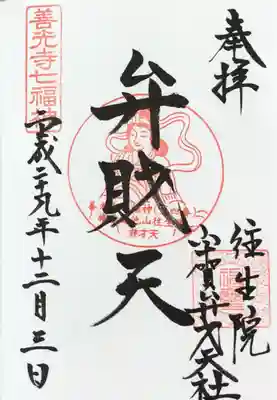 奉拝
往生院
宇賀弁才天社
弁財天
善光寺七福神
平成二十九年十二月三日